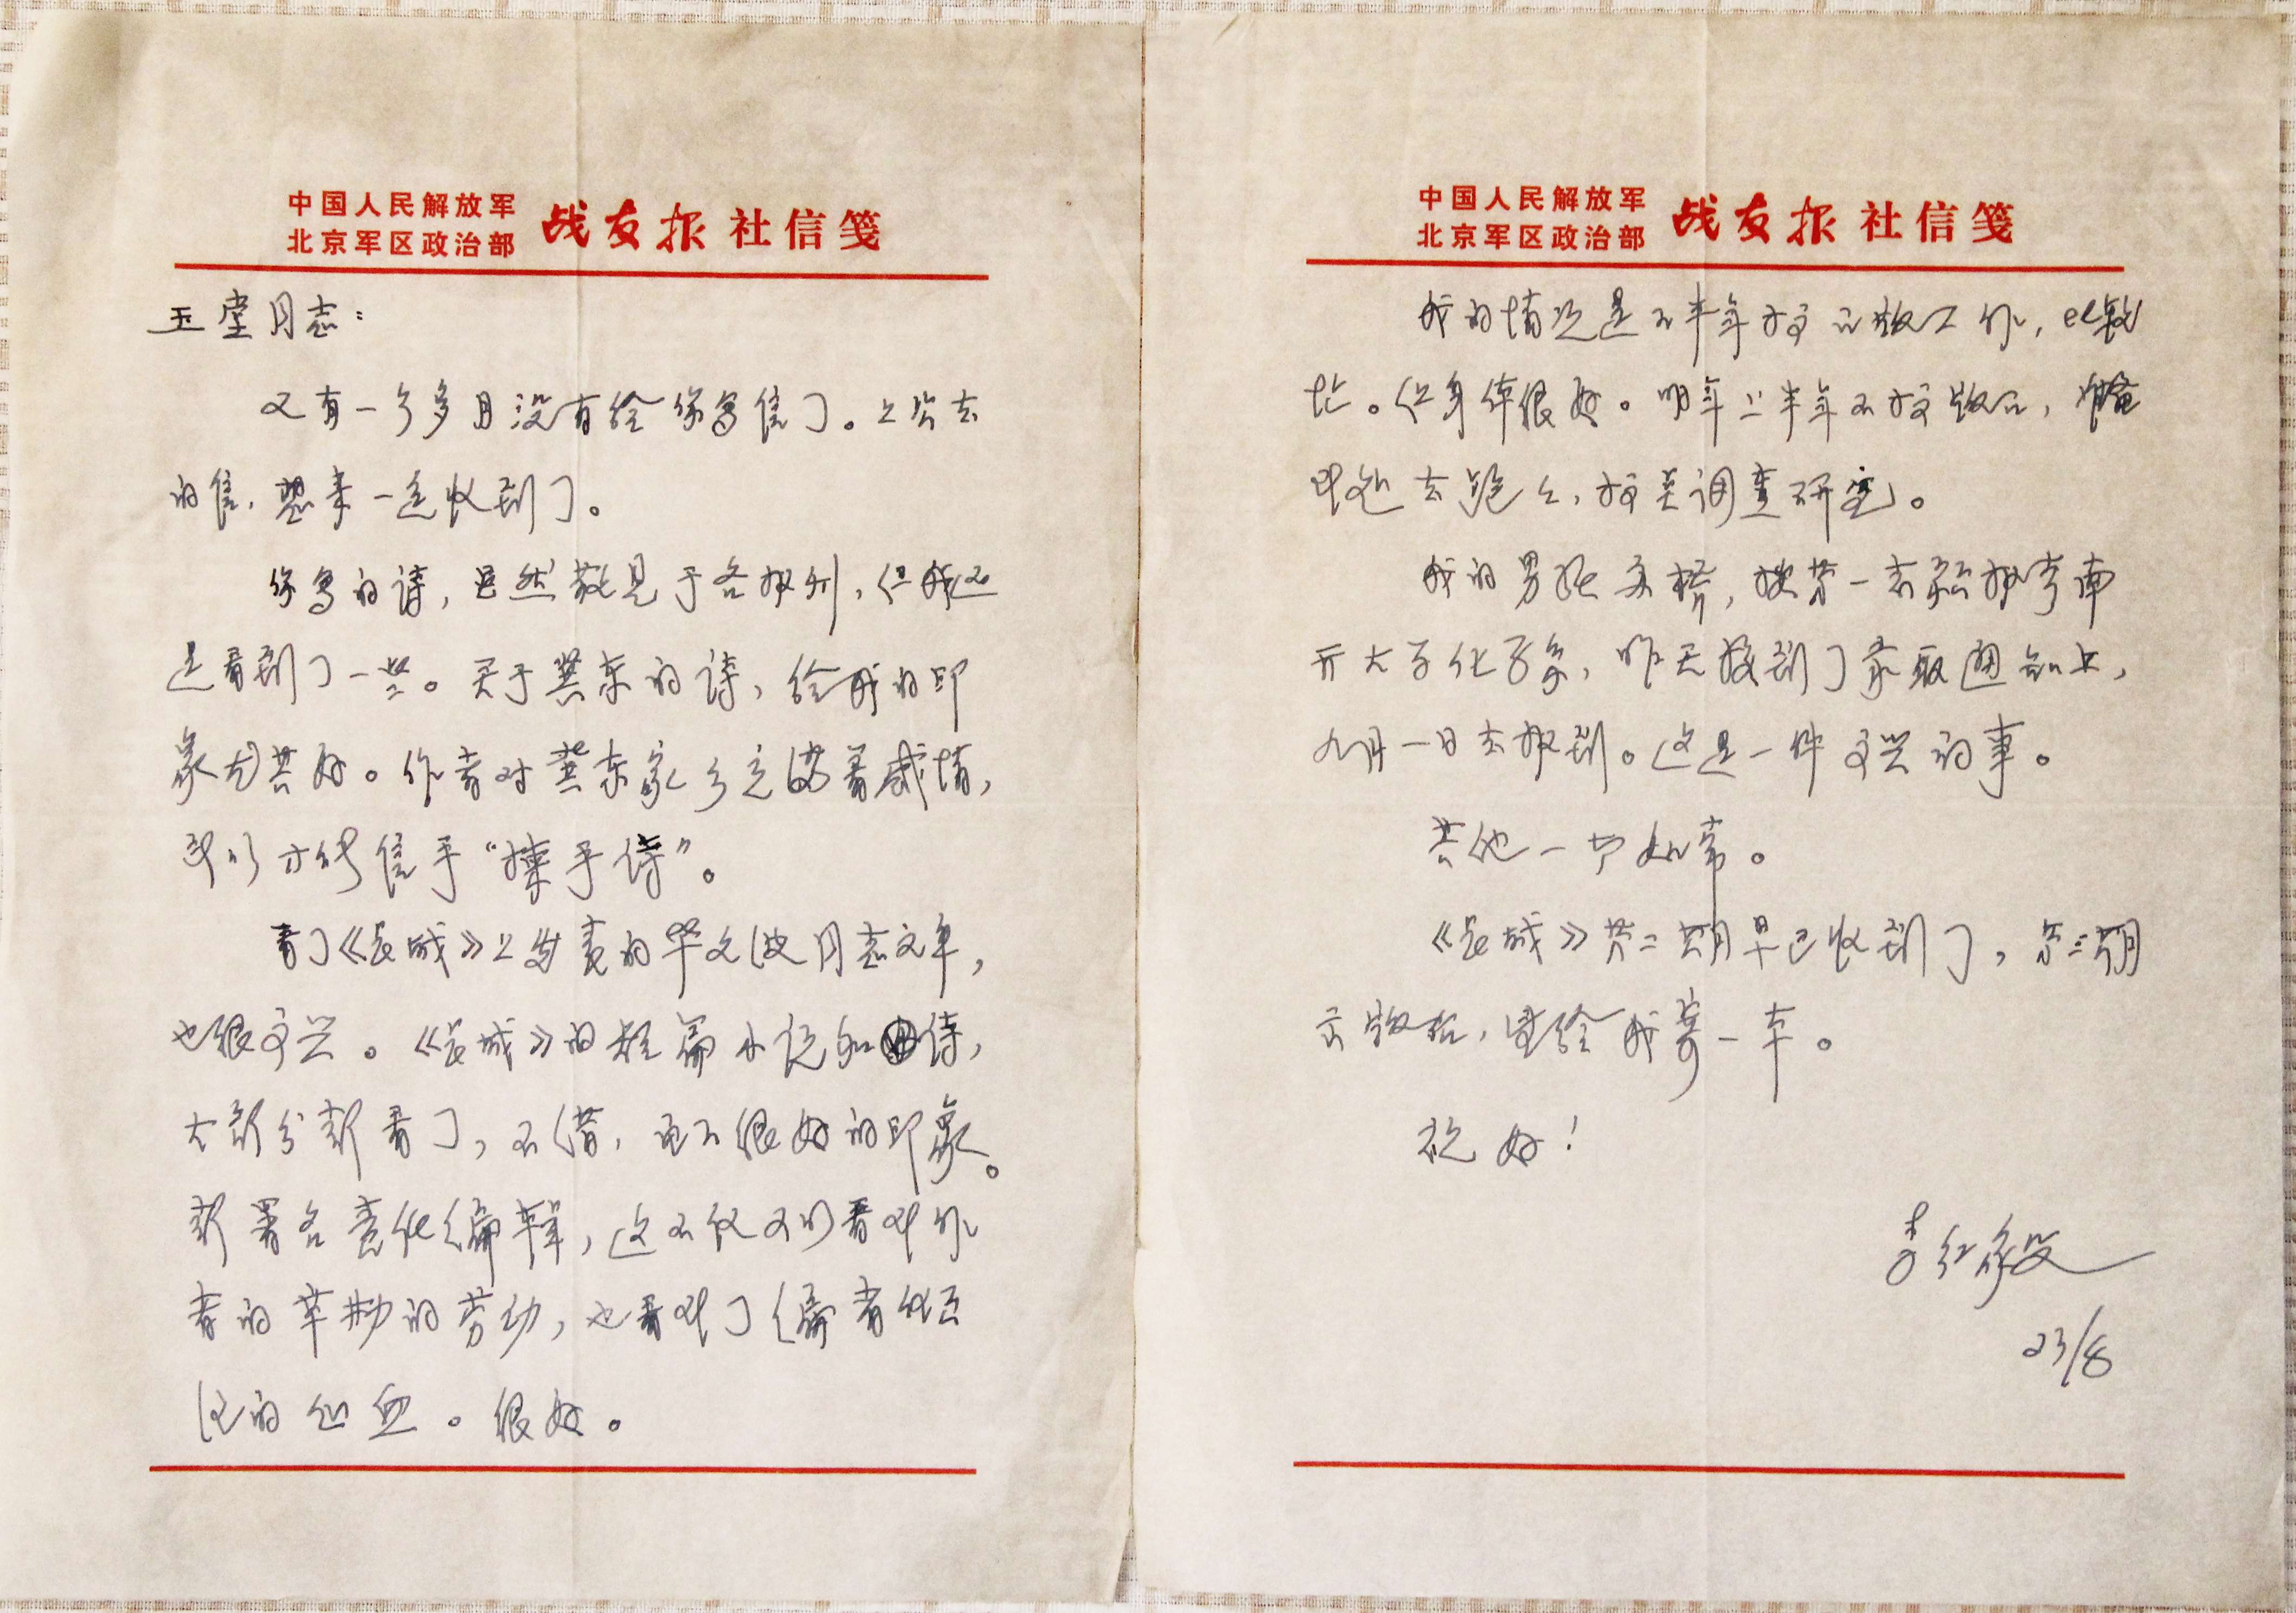 中国人民解放军
北京军区政治部
战友报社信笺
玉堂同志：
又有一个多月没有给你写信了。上次去
的信，想来一定收到了。
你写的诗，虽然散见于各报刊，但我还
是看到了一些。关于冀东的诗，给我的印
象尤其好。作者对冀东家乡充满着感情，
所以才能信手“拣手诗”。
看了《长城》上发表的华文波同志文章，
也很高兴。《长城》的短篇小说和诗，
大部分都看了，不错，留下很好的印象。
都署名责任编辑，这不仅可以看出作
者的辛勤的劳动，也看出了编者付出
的心血。很好。
中国人民解放军
北京军区政治部
战友报社信笺
我的情况是下半年搞出版工作，比较
忙。但身体很好。明年上半年不搞出版，准备
出去跑跑，搞点调查研究。
我的男孩，按第一志愿报考南
开大学化学系，昨天接到了录取通知书，
九月一日去报到。这是一件高兴的事。
其他一切如常。
《长城》第二期早已收到了，第三期
出版后，望给我寄一本。
祝好！
23/8